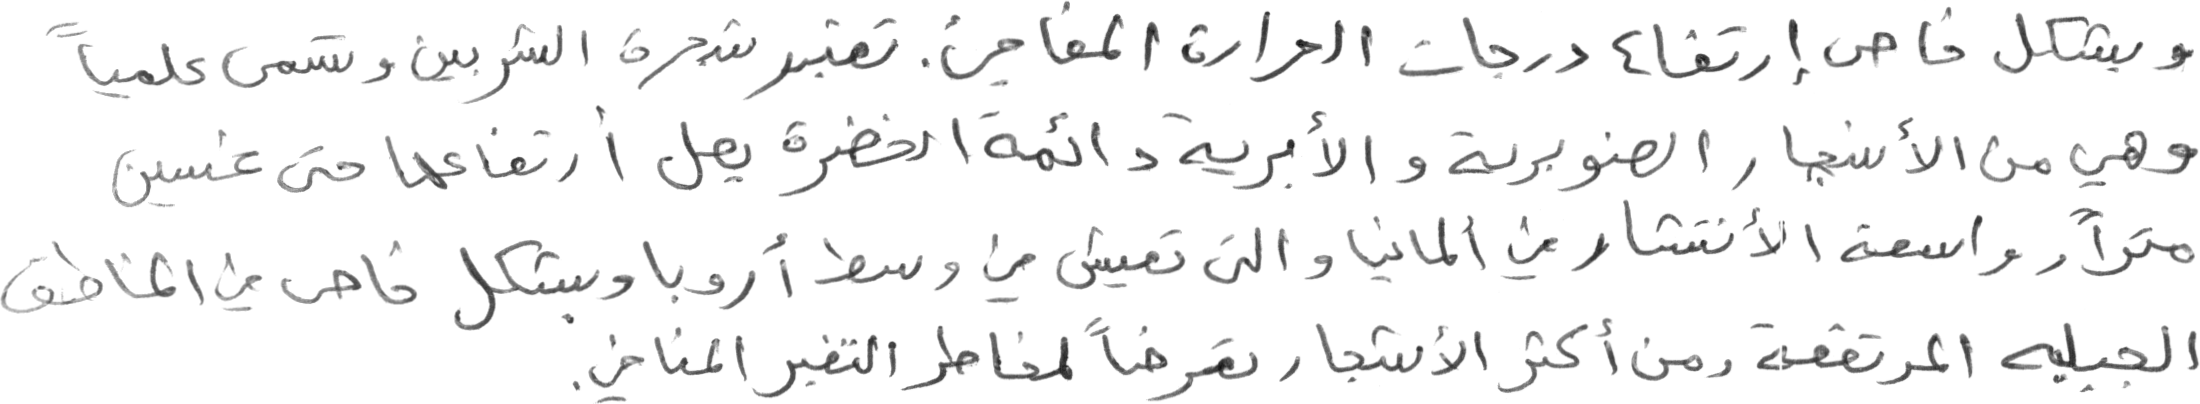 وبشكل خاص إرتفاع درجات الحرارة المفاجئ. تعتبر شجرة الشربين وتسمى علمياً
وهي من الأشجار الصنوبرية والأبرية دائمة الخضرة يصل أرتفاعها حتى خمسين
متراً, واسعة الأنتشار في ألمانيا والتي تعيش في وسط أروبا وبشكل خاص في المناطق
الجبليه المرتفعة ومن أكثر الأشجار تعرضاً لمخاطر التغير المناخي.